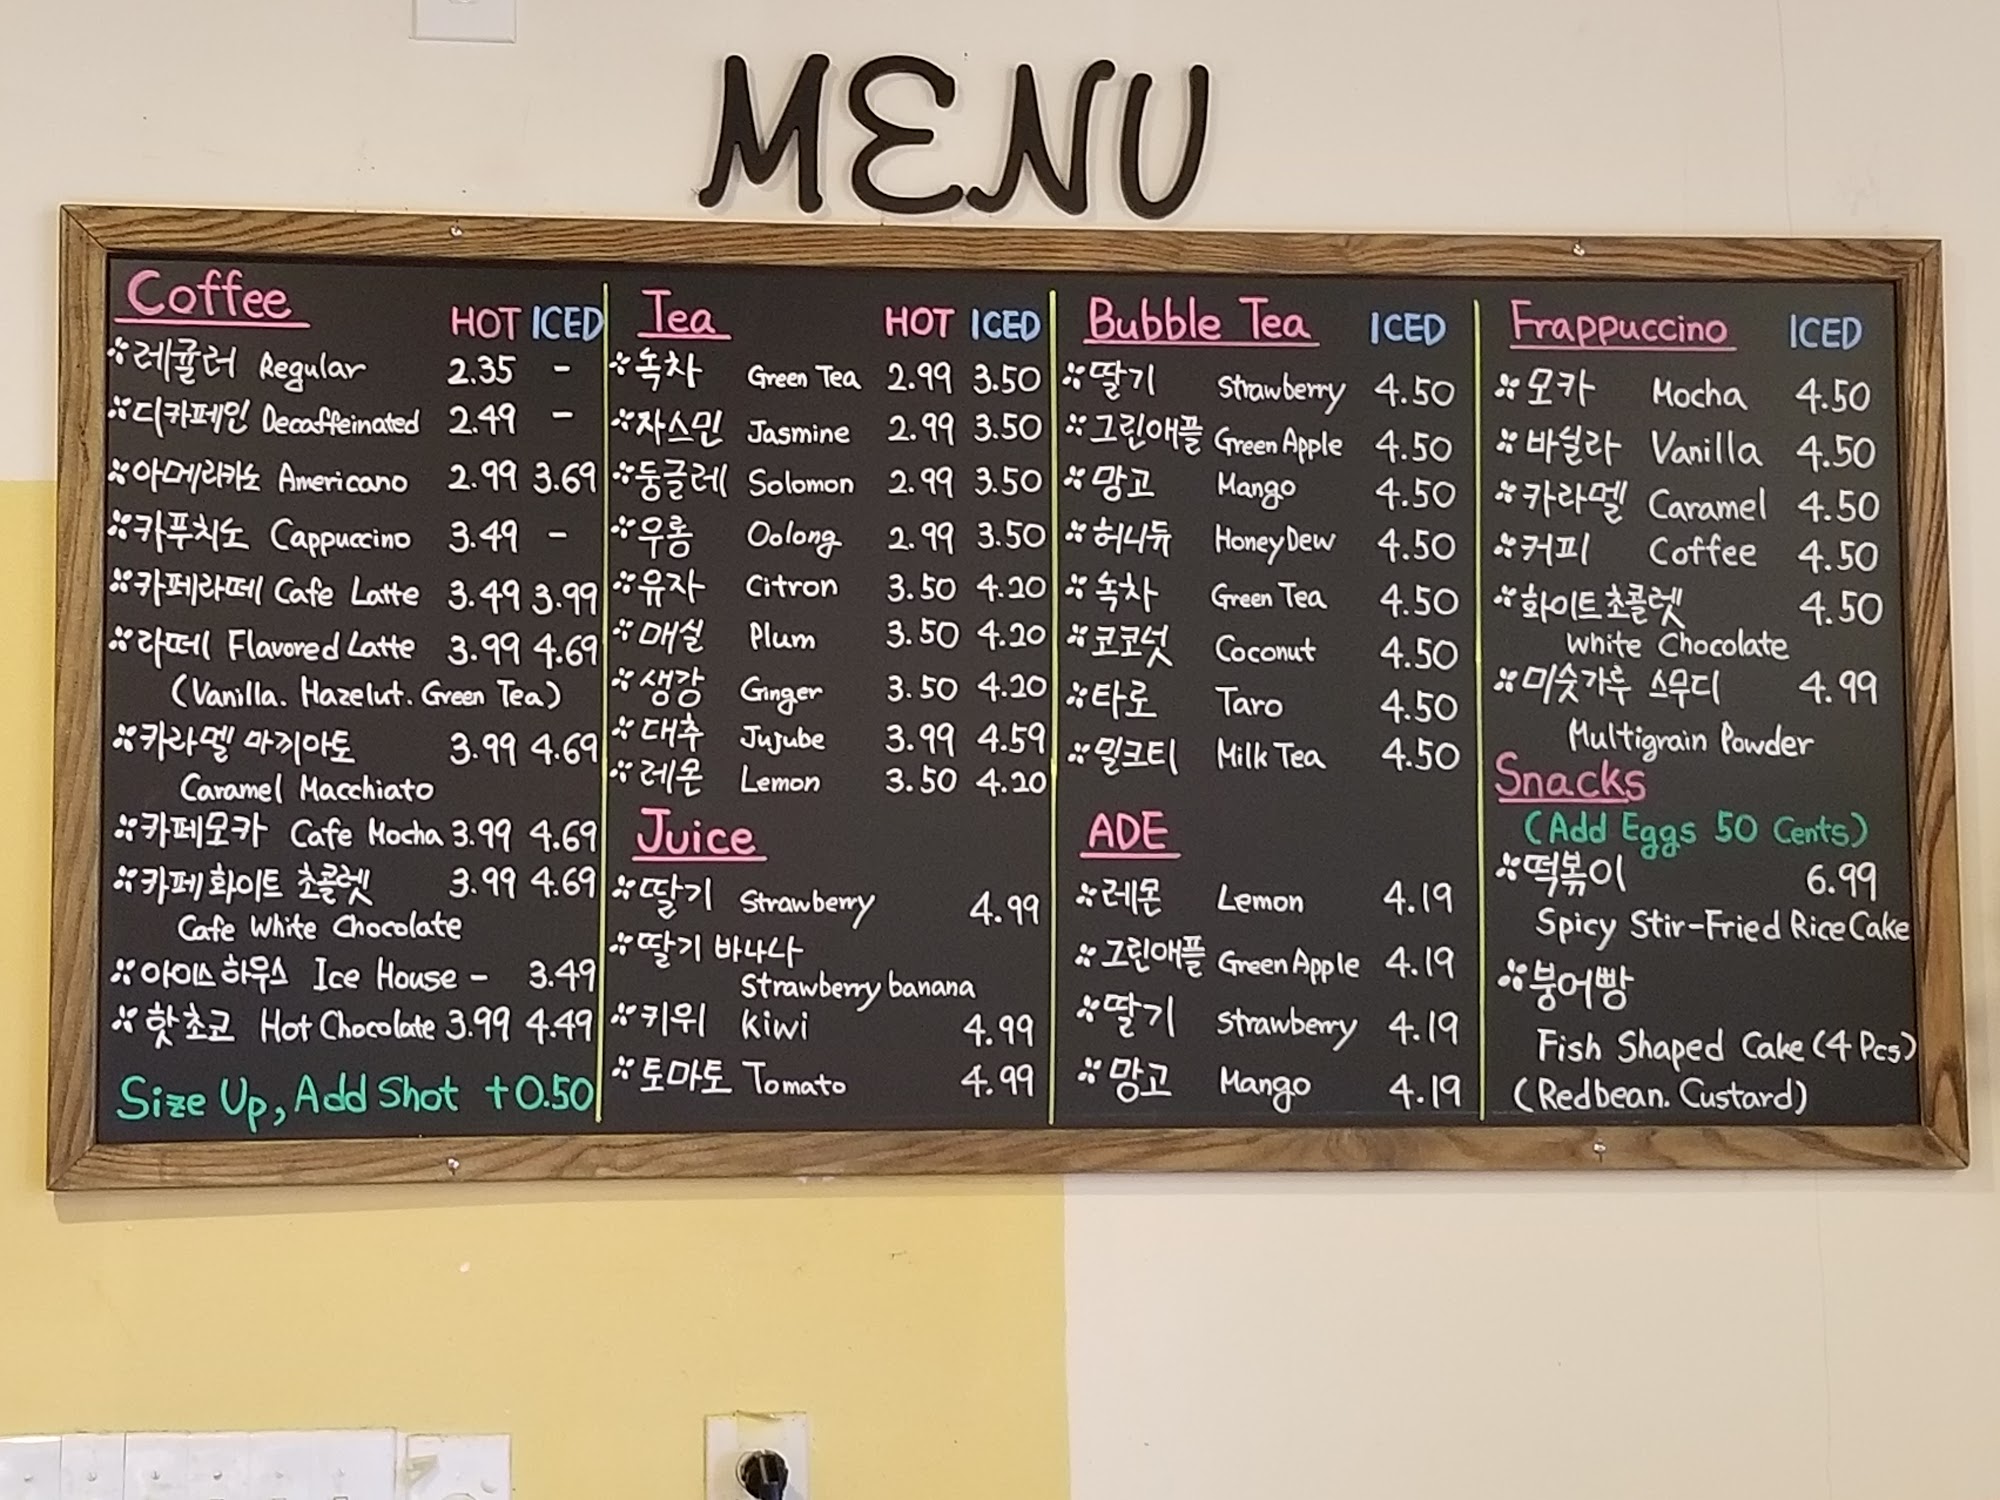 MENU
Coffee HOT ICED
레귤러 Regular 2.35 -
디카페인 Decaffeinated 2.49 -
아메리카노 Americano 2.99 3.69
카푸치노 Cappuccino 3.49 -
카페라떼 Cafe Latte 3.49 3.99
라떼 Flavored Latte 3.99 4.69
(Vanilla. Hazelut. Green Tea)
카라멜 마끼아토 3.99 4.69
Caramel Macchiato
카페모카 Cafe Mocha 3.99 4.69
카페 화이트 초콜렛 3.99 4.69
Cafe White Chocolate
아이스하우스 Ice House - 3.49
핫초코 Hot Chocolate 3.99 4.49
Size Up, Add Shot +0.50
Tea HOT ICED
녹차 Green Tea 2.99 3.50
자스민 Jasmine 2.99 3.50
둥글레 Solomon 2.99 3.50
우롱 Oolong 2.99 3.50
유자 Citron 3.50 4.20
매실 Plum 3.50 4.20
생강 Ginger 3.50 4.20
대추 Jujube 3.99 4.59
레몬 Lemon 3.50 4.20
Juice
딸기 Strawberry 4.99
딸기 바나나
Strawberry banana
키위 kiwi 4.99
토마토 Tomato 4.99
Bubble Tea ICED
딸기 Strawberry 4.50
그린애플 Green Apple 4.50
망고 Mango 4.50
허니듀 HoneyDew 4.50
녹차 Green Tea 4.50
코코넛 Coconut 4.50
타로 Taro 4.50
밀크티 Milk Tea 4.50
ADE
레몬 Lemon 4.19
그린애플 Green Apple 4.19
딸기 Strawberry 4.19
망고 Mango 4.19
Frappuccino ICED
모카 Mocha 4.50
바닐라 Vanilla 4.50
카라멜 Caramel 4.50
커피 Coffee 4.50
화이트초콜렛 4.50
White Chocolate
미숫가루 스무디 4.99
Multigrain Powder
Snacks
(Add Eggs 50 Cents)
떡볶이 6.99
Spicy Stir-Fried Rice Cake
붕어빵
Fish Shaped Cake (4 Pcs)
(Redbean. Custard)